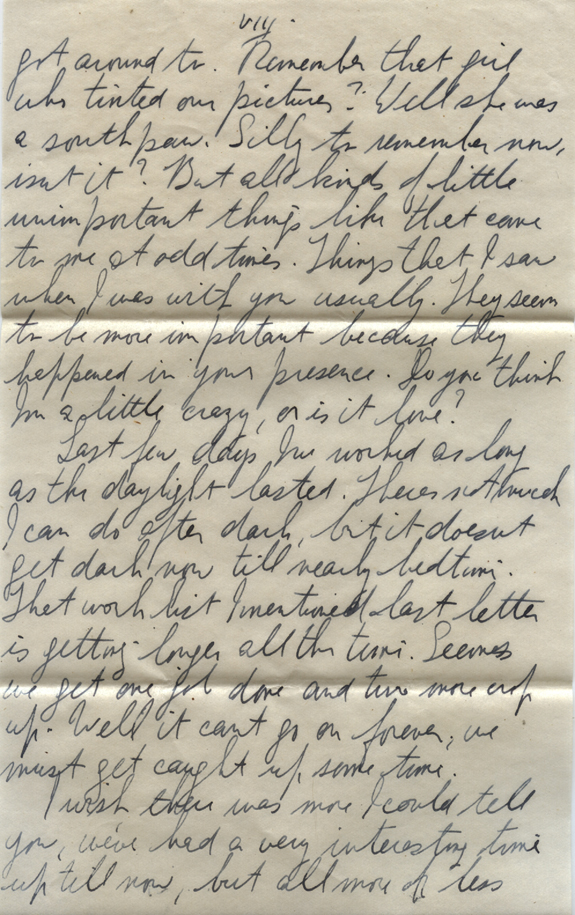 VII.
got around to. Remember that girl
who tinted our pictures? Well she was
a south paw. Silly to remember now,
isnt it? But all kinds of little
unimportant things like that come
to me at odd times. Things that I saw
when I was with you usually. They seem
to be more important because they
happened in your presence. Do you think
Im a little crazy, or is it love?
Last few days Ive worked as long
as the daylight lasted. Theres not much
I can do after dark, but it doesnt
get dark now till nearly bedtime.
That work list I mentioned last letter
is getting longer all the time. Seems
we get one job done and two more crop
up. Well it cant go on forever, we
must get caught up some time.
I wish there was more I could tell
you, we've had a very interesting time
up till now, but all more or less